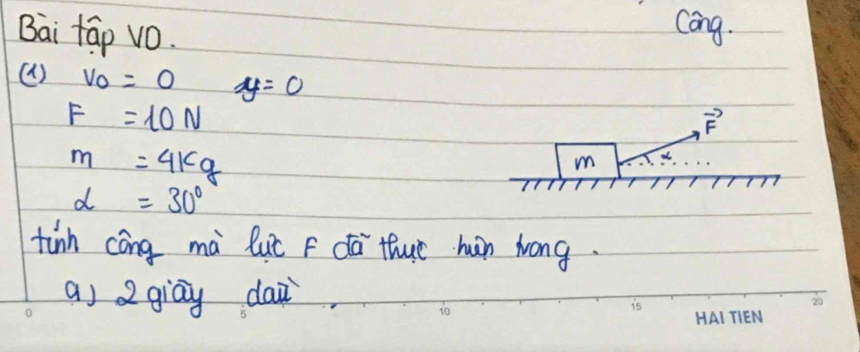 Bài tập VD.
Công.
(1) v₀ = 0 y = 0
F = 10 N
m = 4 Kg
α = 30⁰
F⃗
m
α
tính công mà lực F đã thực hiện trong.
a) 2 giây đầu.
0 5 10 15 20
HAI TIEN